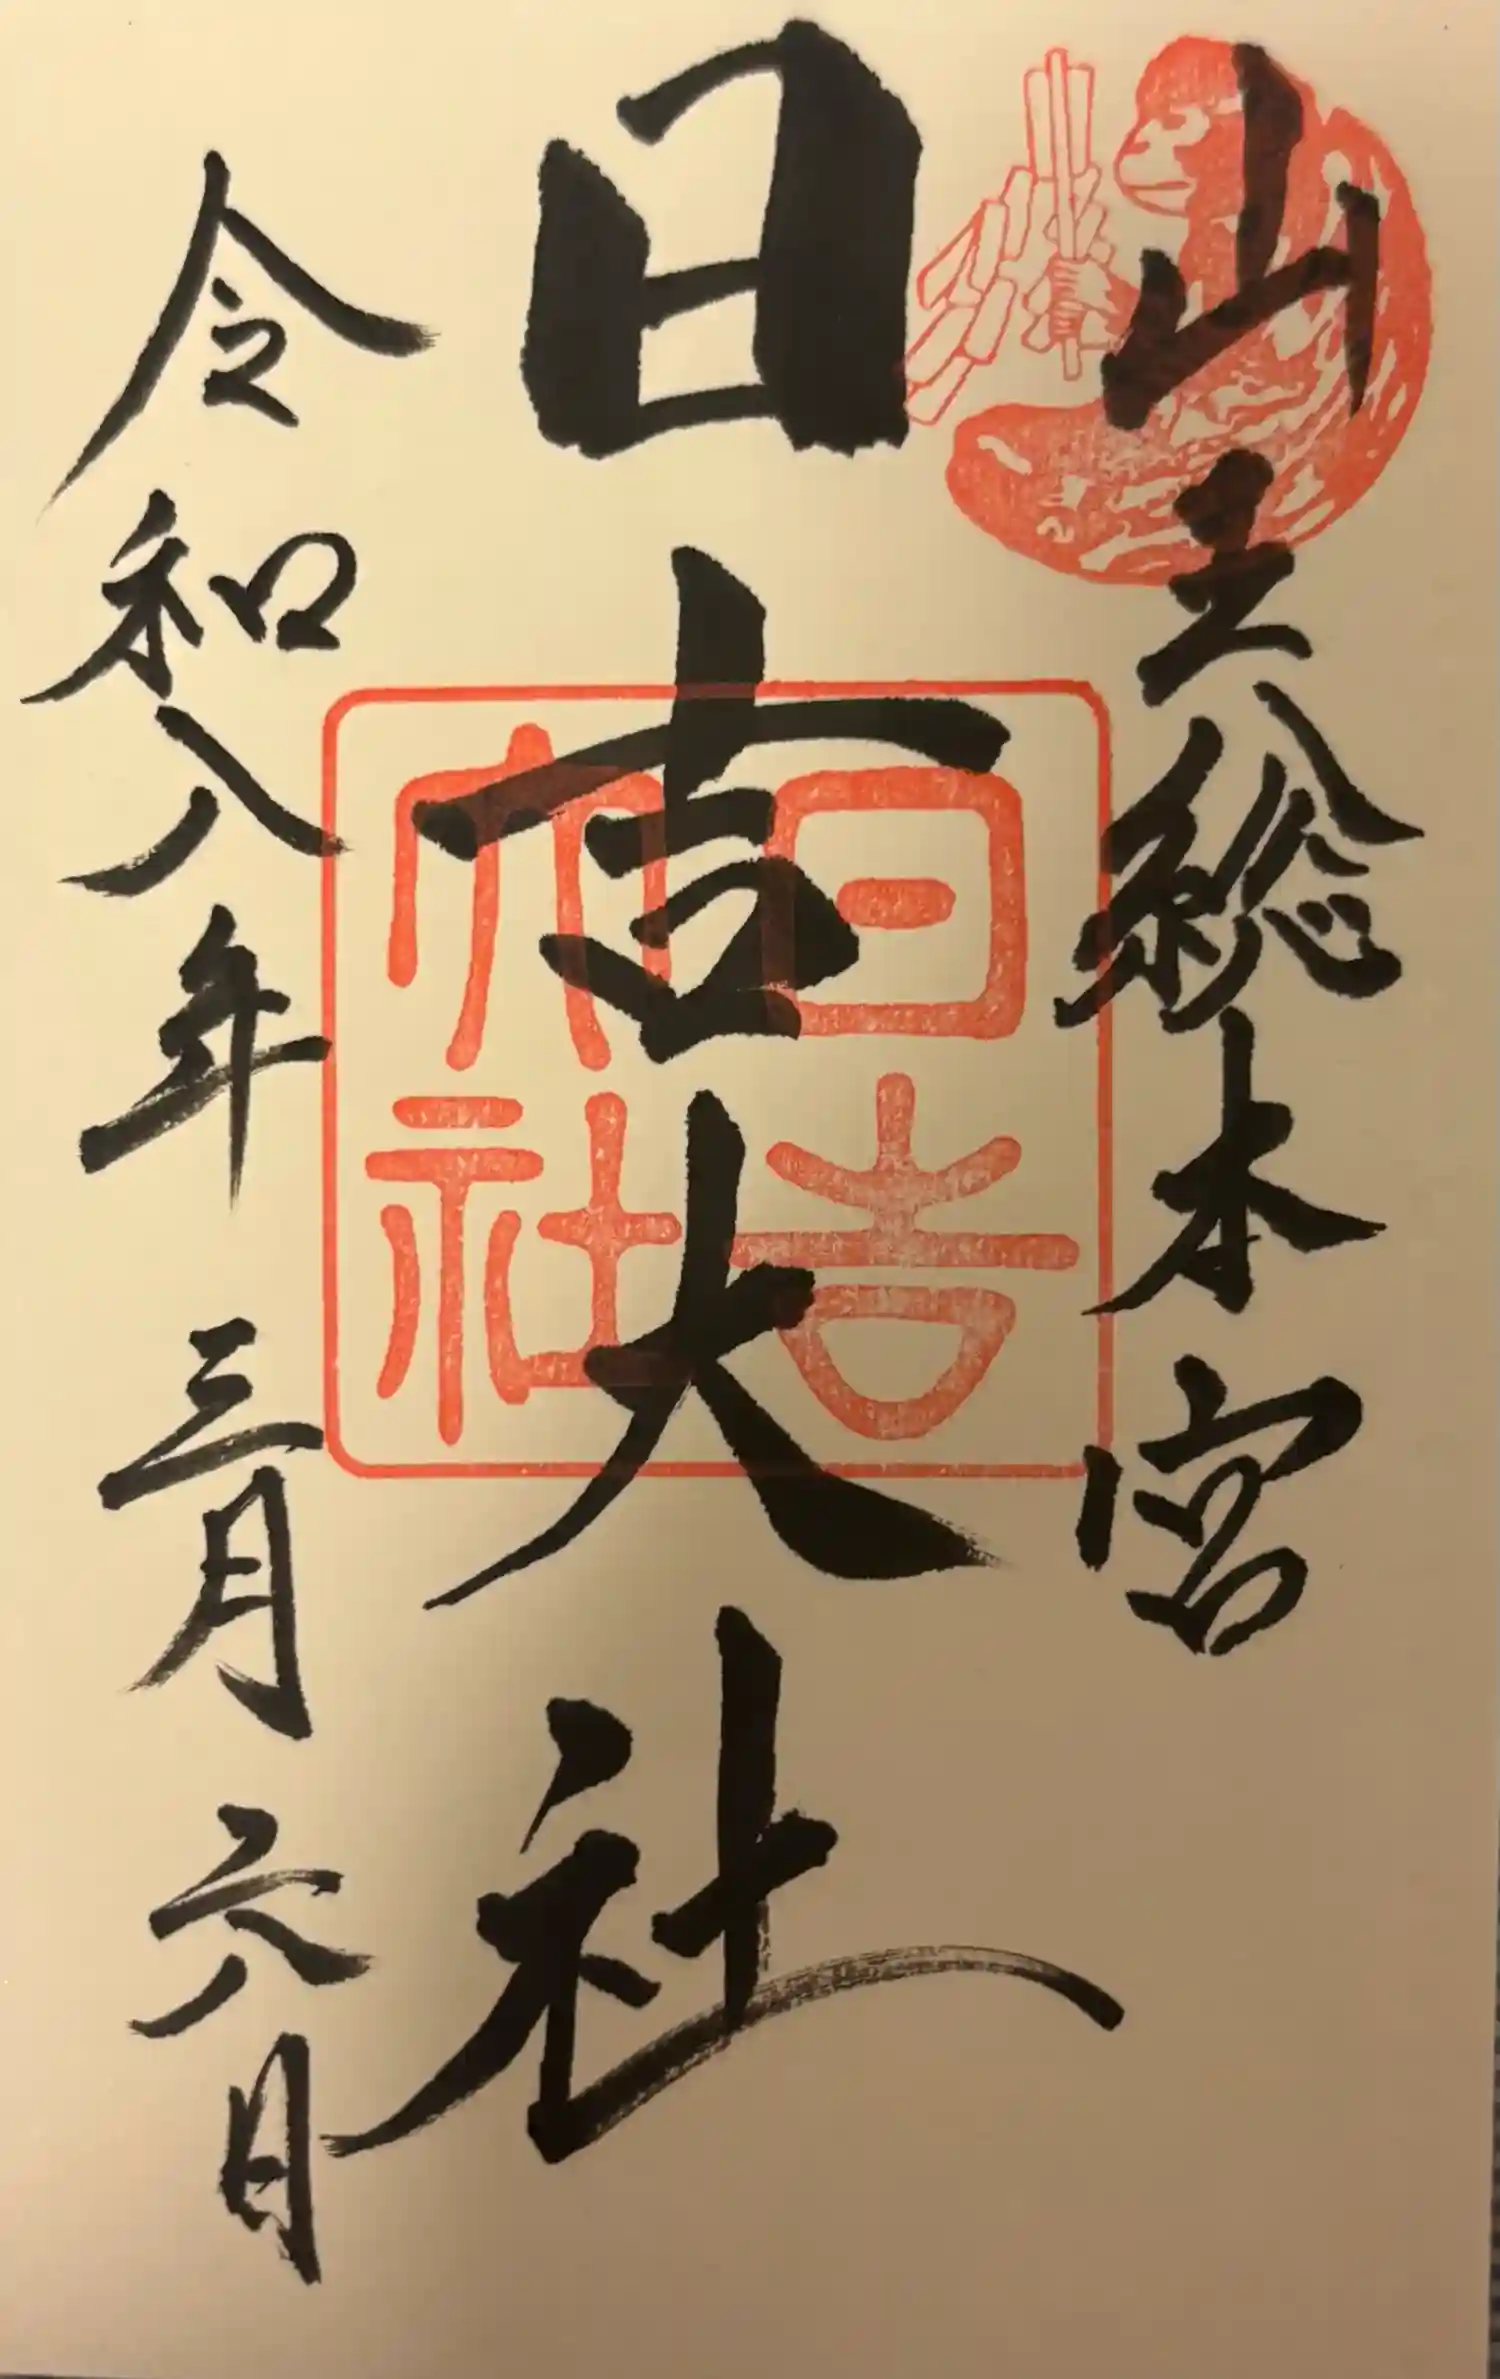 山王総本宮
日吉大社
日吉
大社
令和八年 三月 六日